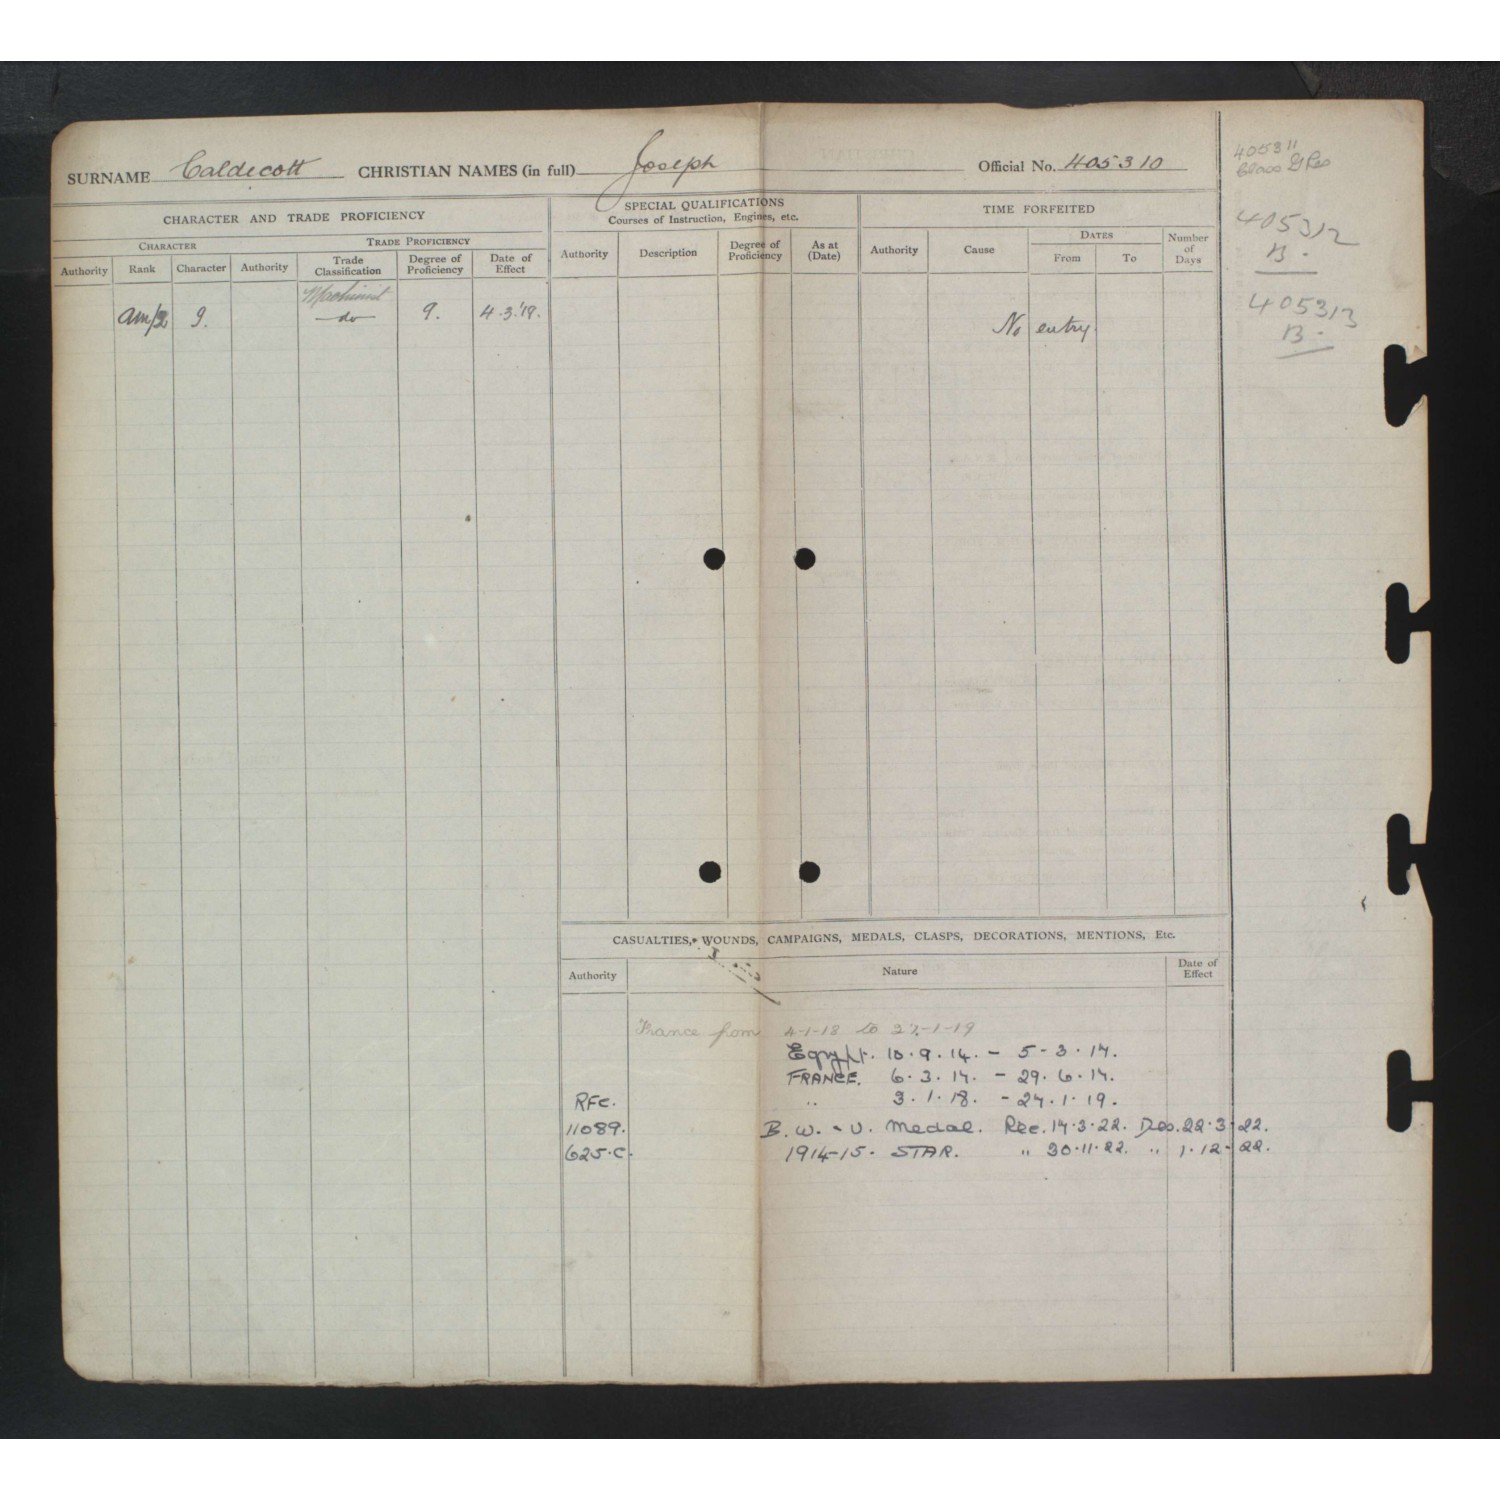 SURNAME Caldecott CHRISTIAN NAMES (in full) Joseph Official No. 405310
405311
Class G Res
405312
B.
405313
B.
CHARACTER AND TRADE PROFICIENCY
SPECIAL QUALIFICATIONS
Courses of Instruction, Engines, etc.
TIME FORFEITED
CHARACTER TRADE PROFICIENCY
Authority Rank Character Authority Trade Classification Degree of Proficiency Date of Effect
Authority Description Degree of Proficiency As at (Date)
Authority Cause DATES From To Number of Days
Machinist
am/2 G. do G. 4.3.'19.
No entry
CASUALTIES, WOUNDS, CAMPAIGNS, MEDALS, CLASPS, DECORATIONS, MENTIONS, Etc.
Authority Nature Date of Effect
France from 4-1-18 to 27-1-19
Egypt. 10.9.14. - 5-3.17.
FRANCE. 6.3.17. - 29.6.17.
RFC. " 3.1.18. - 27.1.19.
11089. B.W.-V. Medal. Rec. 14.3.22. Des. 22.3.22.
625.C. 1914-15. STAR. " 30.11.22. " 1.12.22.